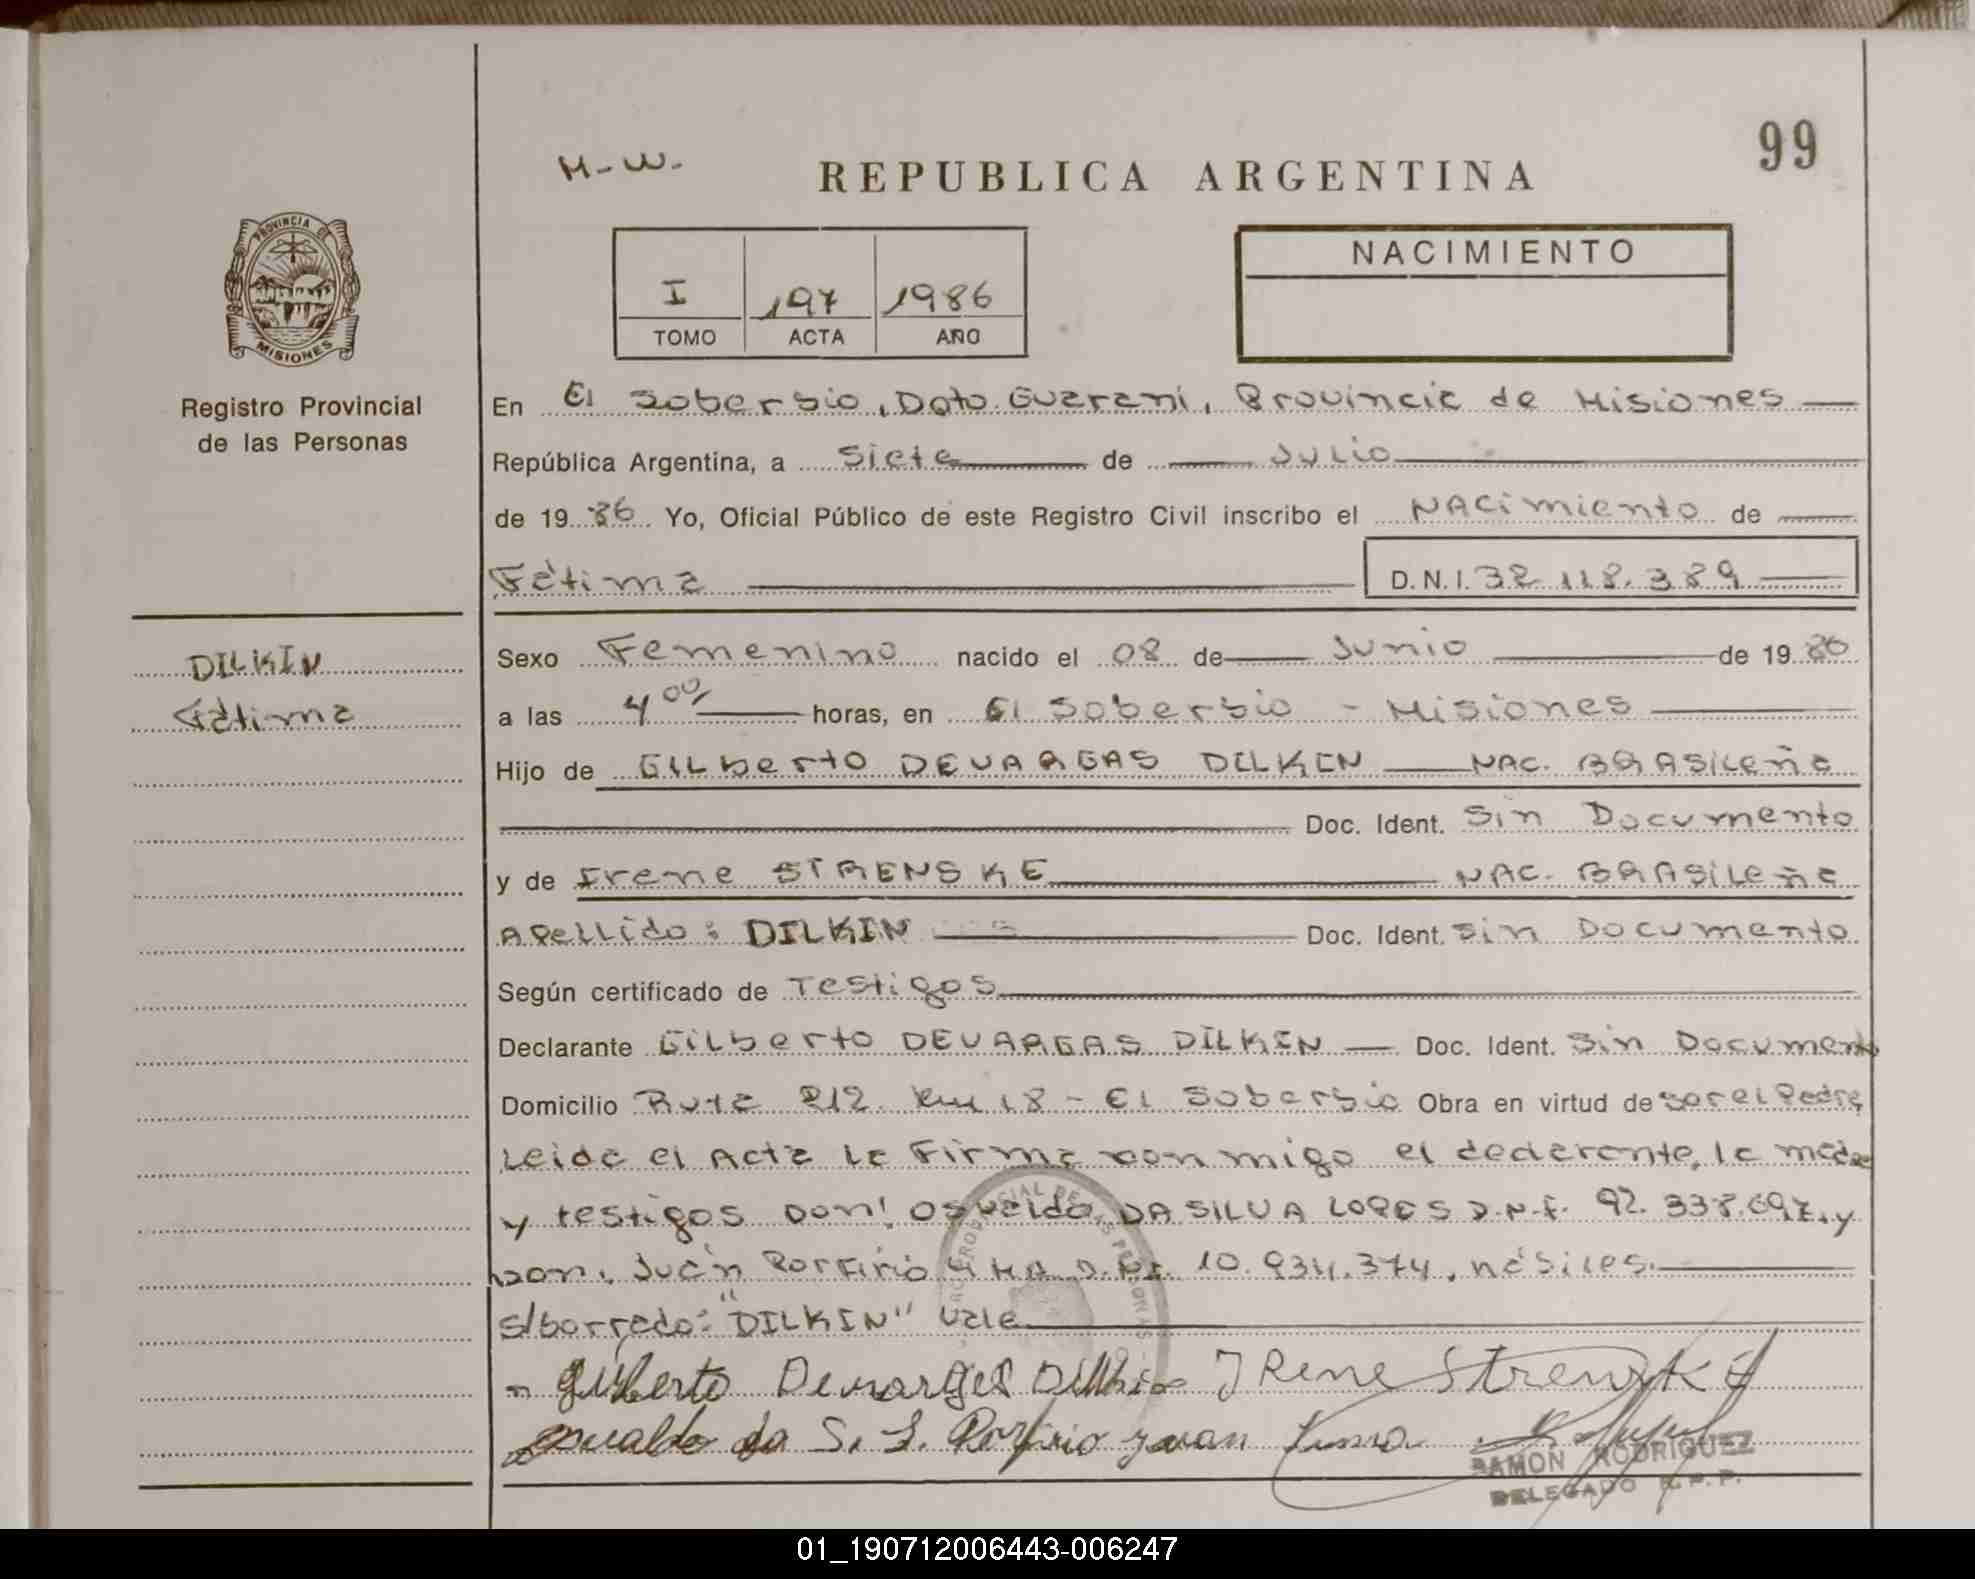 99
M-W.
REPUBLICA ARGENTINA
PROVINCIA DE
MISIONES
Registro Provincial
de las Personas
I 197 1986
TOMO ACTA AÑO
NACIMIENTO
En El Soberbio, Dpto. Guaraní, Provincia de Misiones
República Argentina, a Siete de Julio
de 1986 Yo, Oficial Público de este Registro Civil inscribo el NACimiento de
Fátima D.N.I. 32.118.389
DILKIN
Fátima
Sexo Femenino nacido el 08 de Junio de 1986
a las 4 00 horas, en El Soberbio - Misiones
Hijo de GILberto DEVARGAS DILKIN NAC. BRASILeña
Doc. Ident. Sin Documento
y de Irene STRENSKE NAC. BRASILeña
Apellido: DILKIN Doc. Ident. Sin Documento
Según certificado de Testigos
Declarante Gilberto DEVARGAS DILKIN Doc. Ident. Sin Documento
Domicilio Ruta 212 Km 18 - El Soberbio Obra en virtud de ser el Padre
Leida el Acta la Firma conmigo el declarante, la madre
y testigos Don: Osvaldo DA SILVA LOPES D.N.I. 92.338.697. y
Don: Juán Porfirio D.N.I. 10.934.374, hábiles.
s/borrado: "DILKIN" Vale
Gilberto Devargas Dilkin IRene Strenske
Osvaldo da S. L. Porfirio Juan
RAMON RODRIGUEZ
DELEGADO R.P.P.
01_190712006443-006247